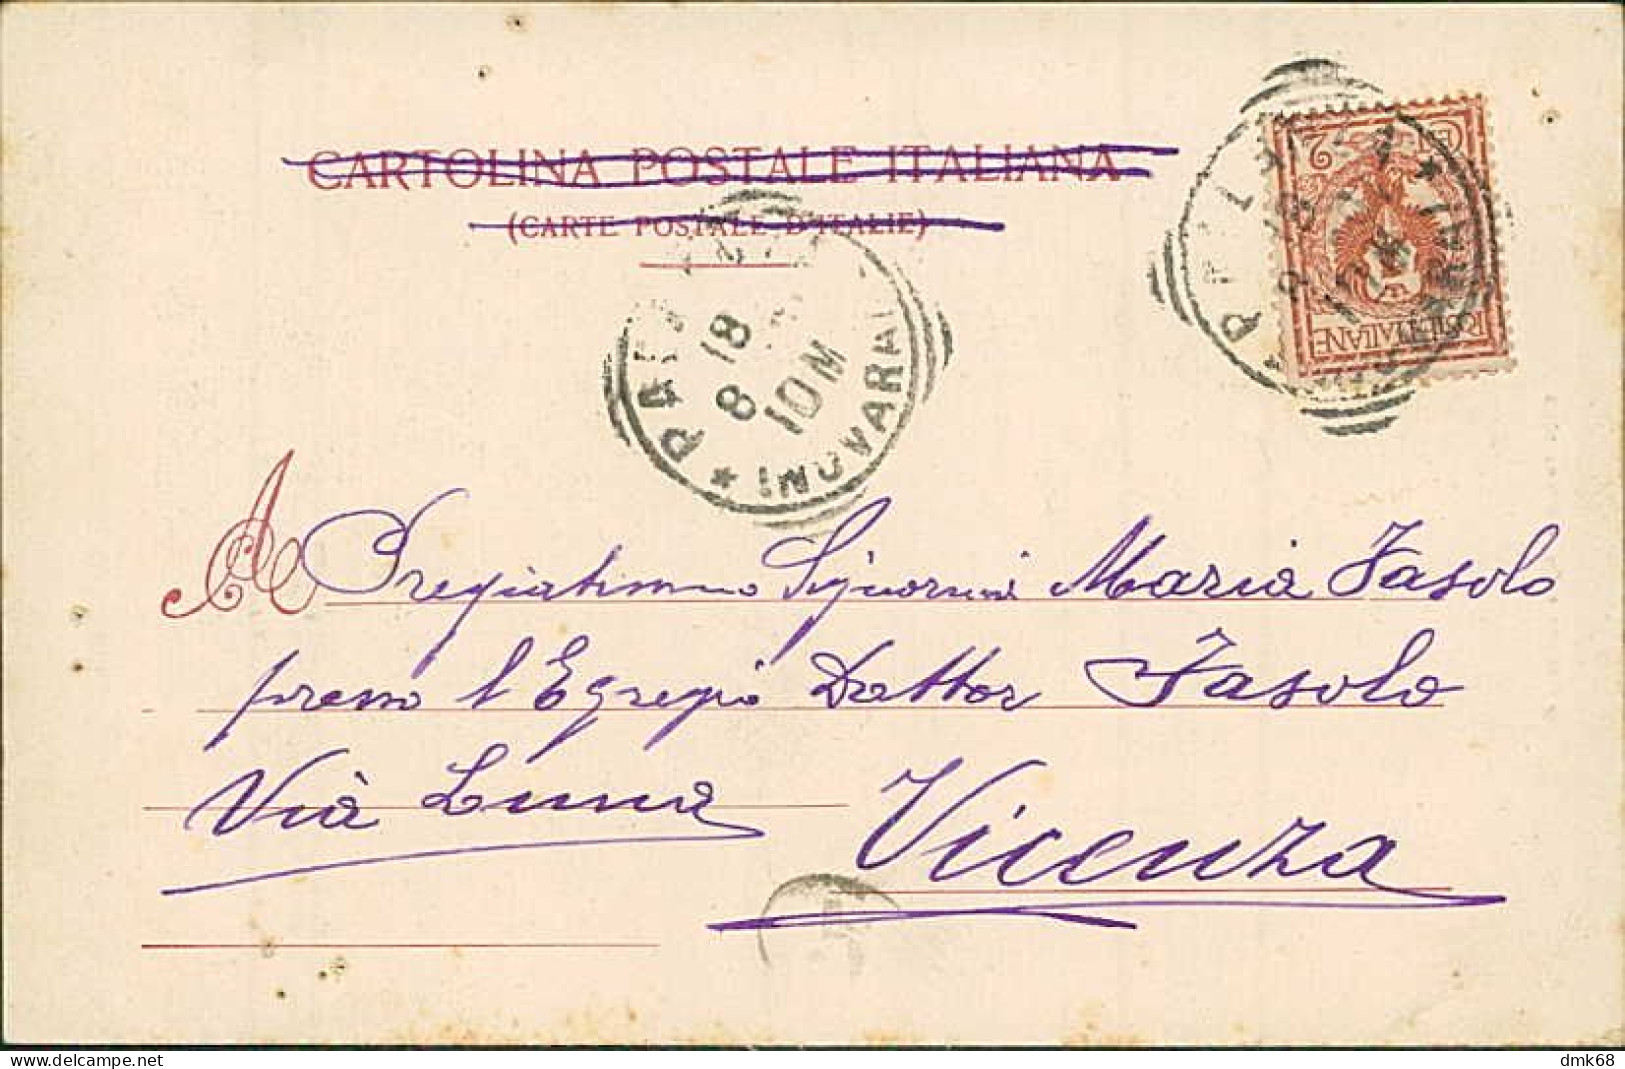 CARTOLINA POSTALE ITALIANA
(CARTE POSTALE D'ITALIE)
CENT. 2
POSTE ITALIANE
8 18
10 M
A Pregiatissima Signorina Maria Fasolo
presso l'Egregio Dottor Fasolo
Vià Luna
Vicenza
delcampe.net
dmk68